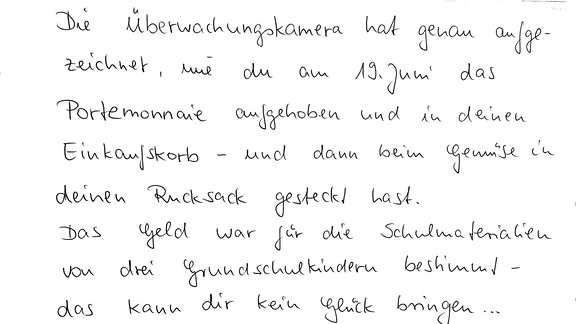 Die Überwachungskamera hat genau aufge-
zeichnet, wie du am 19. Juni das
Portemonnaie aufgehoben und in deinen
Einkaufskorb - und dann beim Gemüse in
deinen Rucksack gesteckt hast.
Das Geld war für die Schulmaterialien
von drei Grundschulkindern bestimmt -
das kann dir kein Glück bringen...